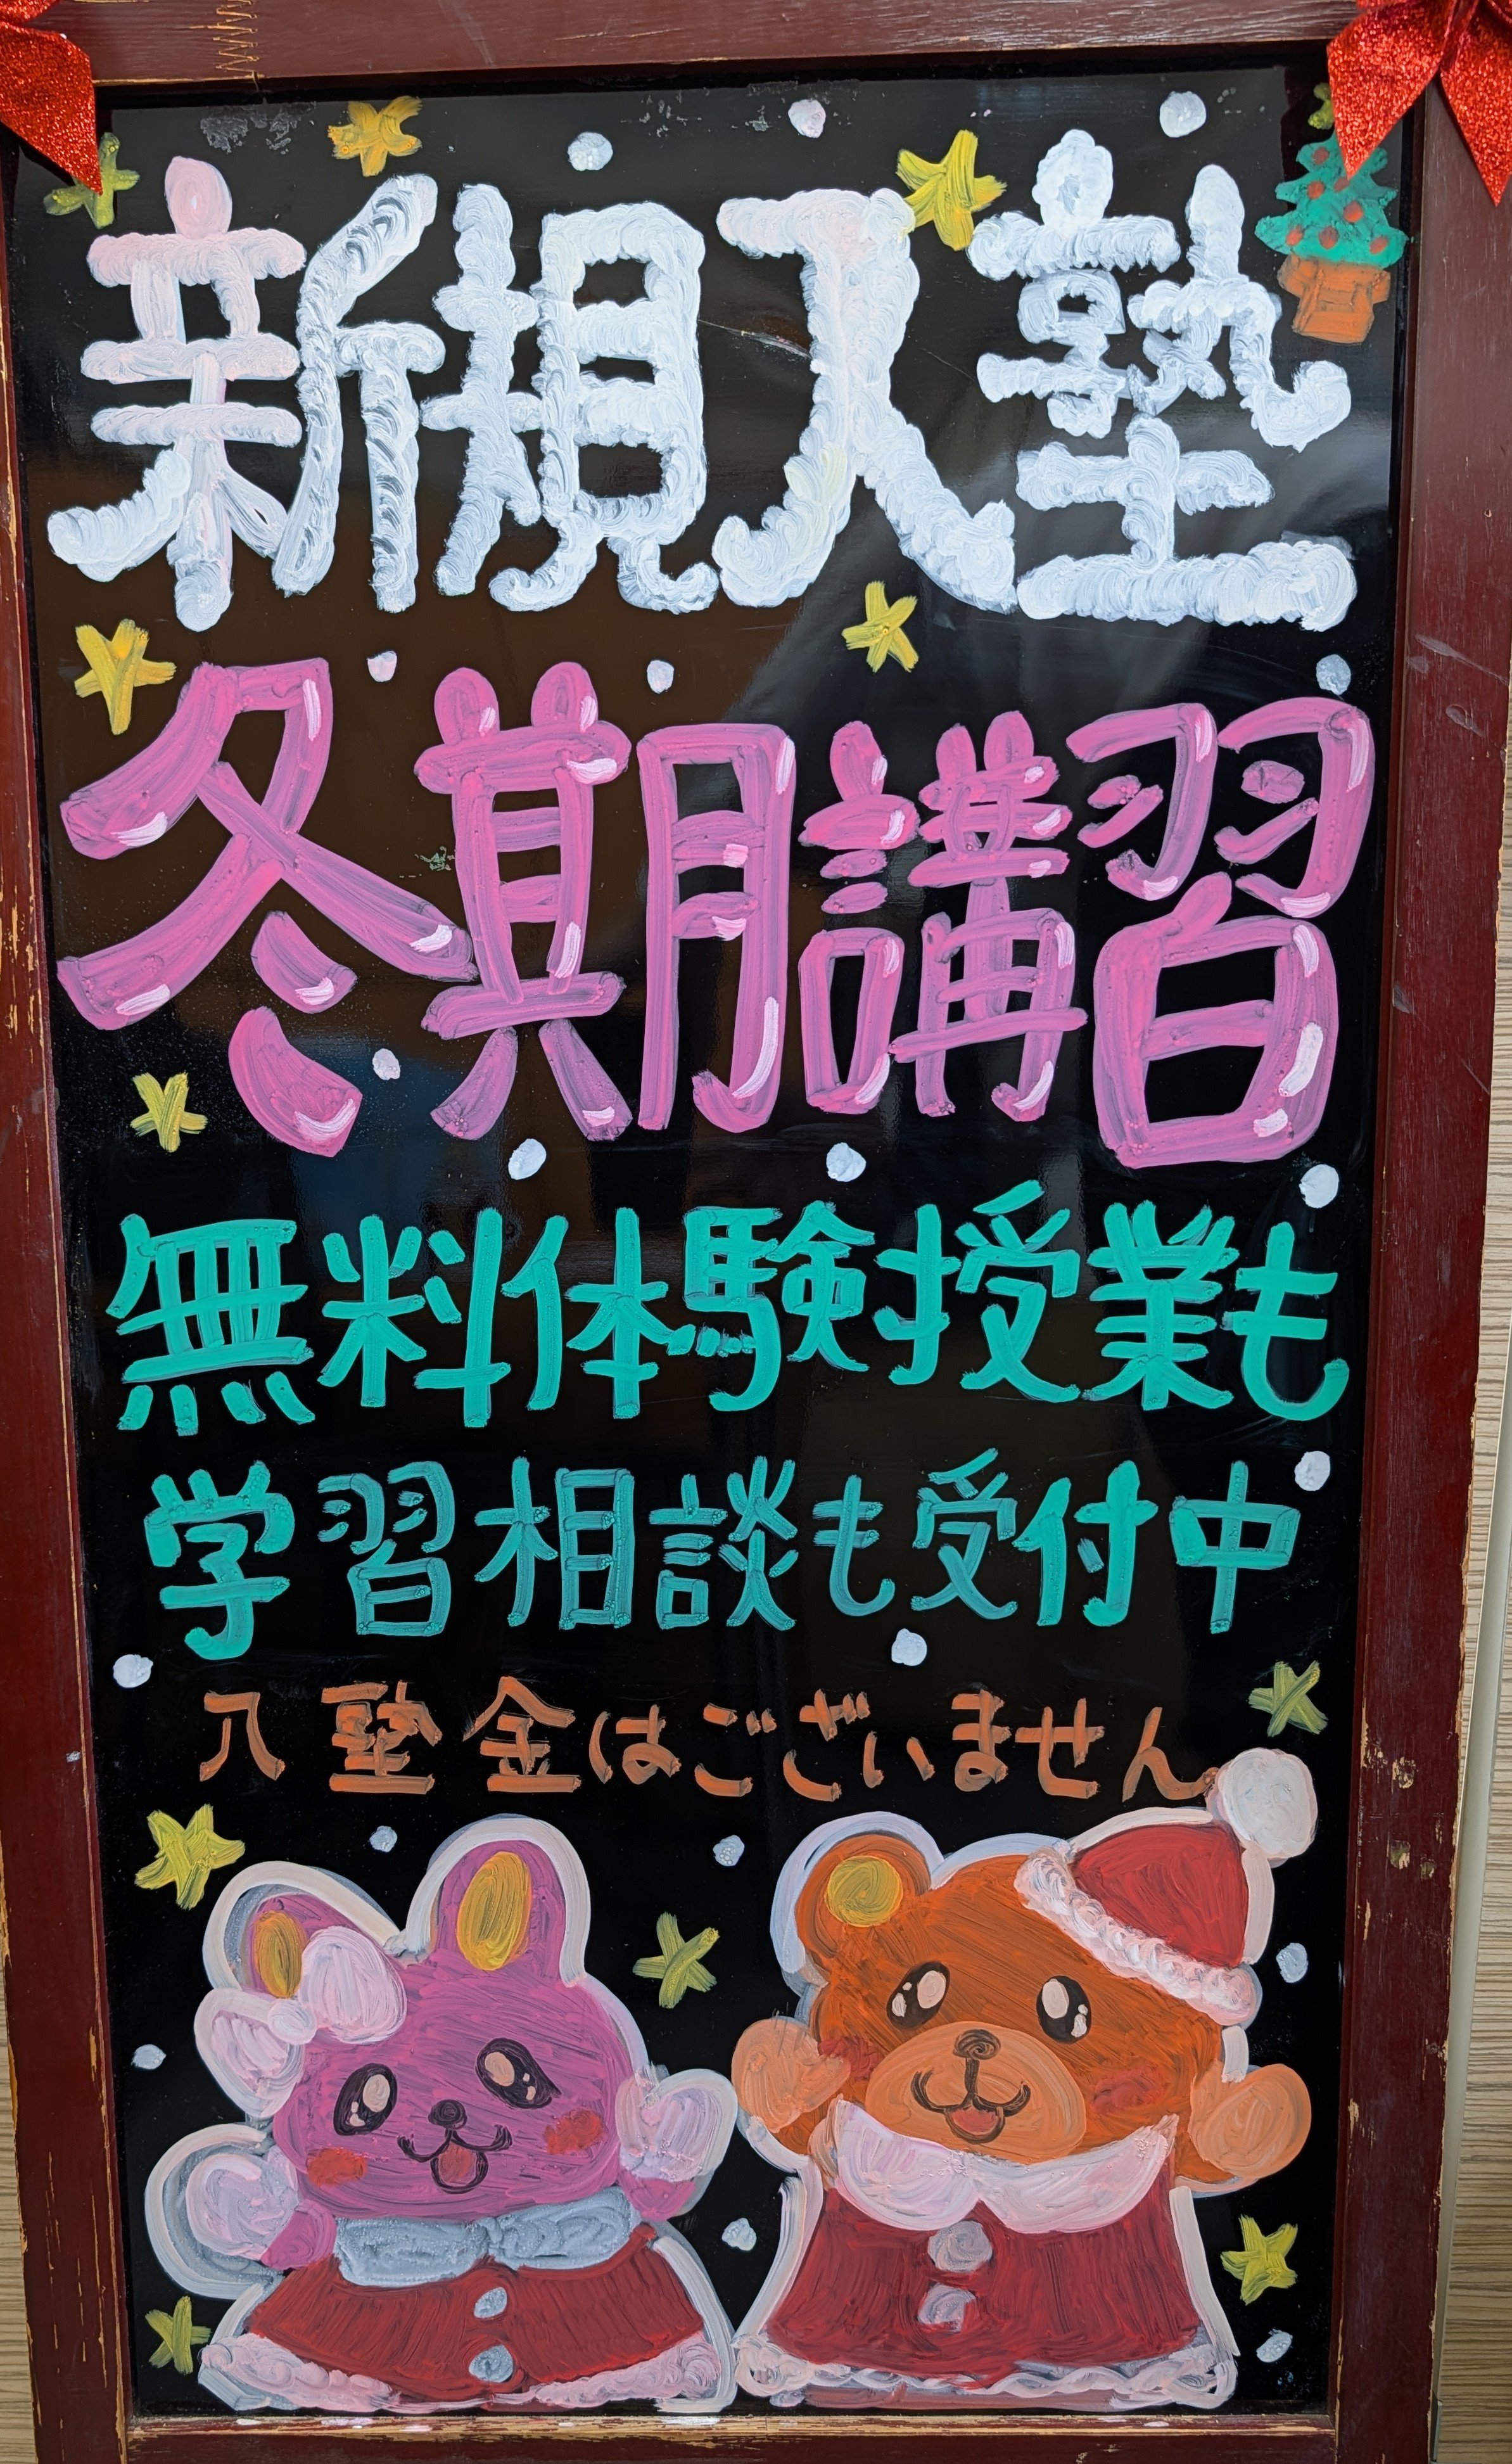 新規入塾
冬期講習
無料体験授業も
学習相談も受付中
入塾金はございません